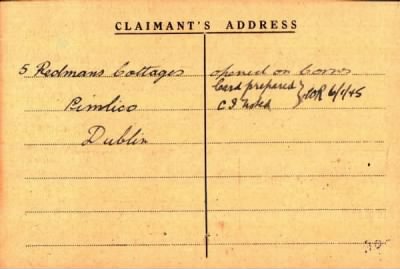 CLAIMANT'S ADDRESS
5 Redmans Cottages
Pimlico
Dublin
opened on Corres
Card prepared
C I noted
6/1/45